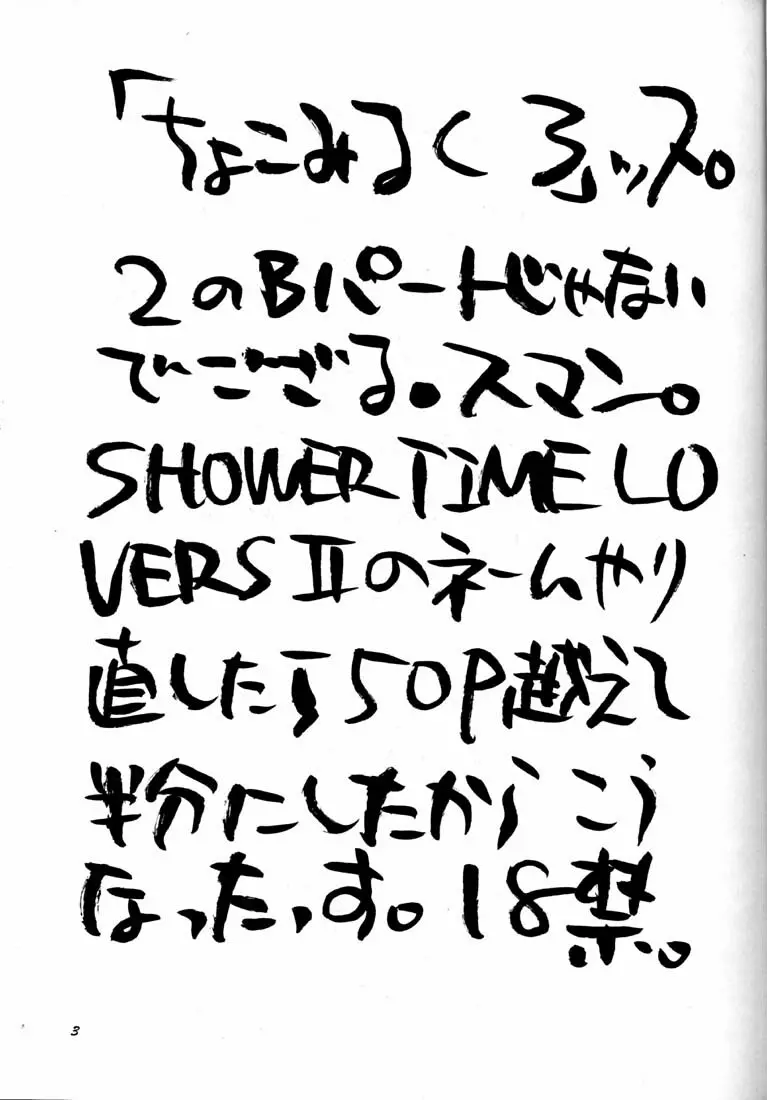 「ちょこみるく3」ッス。
2のBパートじゃない
でござる。スマン。
SHOWER TIME LO
VERS IIのネームやり
直したら50P越えて
半分にしたからこう
なったっす。18禁。
3